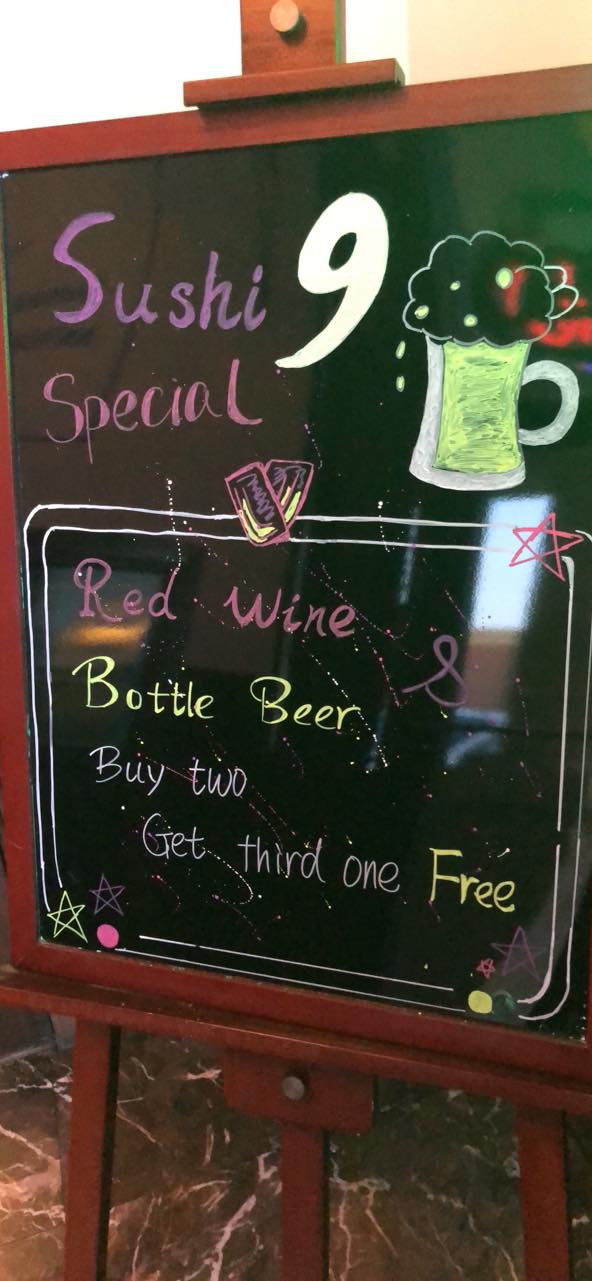 Sushi 9
Special
Red Wine &
Bottle Beer
Buy two
Get third one Free